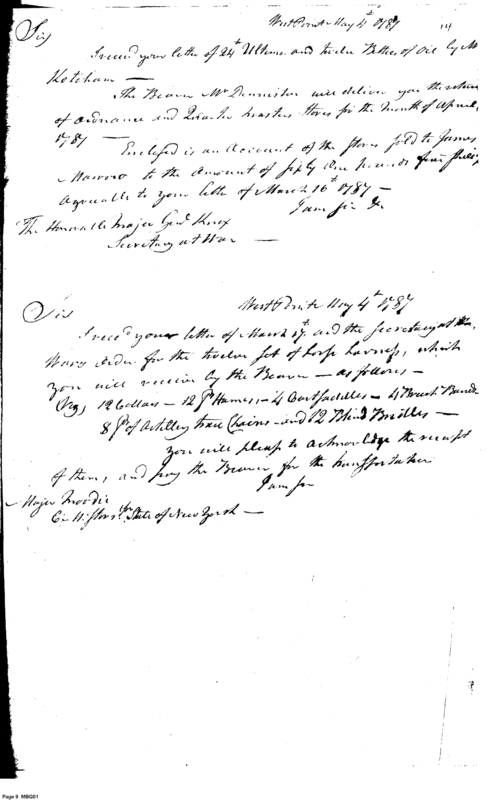 West Point May 4th 1787
14
Sir
I recd your letter of 24th Ultimo and twelve Bottles of Oil by Mr
Ketcham —
The Bearer Mr Dunnisher will deliver you the return
of Ordnance and Quarter Masters Stores for the Month of April
1787 —
Enclosed is an Account of the Stores sold to James
to the Amount of sixty One pounds four Shillgs
Agreeable to your letter of March 16th 1787 —
I am Sir &c
The Honorable Major Genl Knox
Secretary at War —
West Point May 4th 1787
Sir
I recd your letter of March 17th and the Secretary at
Wars Order for the twelve Set of Horse Harness, which
you will receive by the Bearer — as follows —
12 Collars — 12 pr Hames — 4 Cart Saddles — 4 Bands
8 pr of Artillery trace Chains — and 12 Blind Bridles —
you will please to acknowledge the receipt
of them, and pay the Bearer for the transportation
I am Sir
Major
State of New York —
Page 9 MBG01